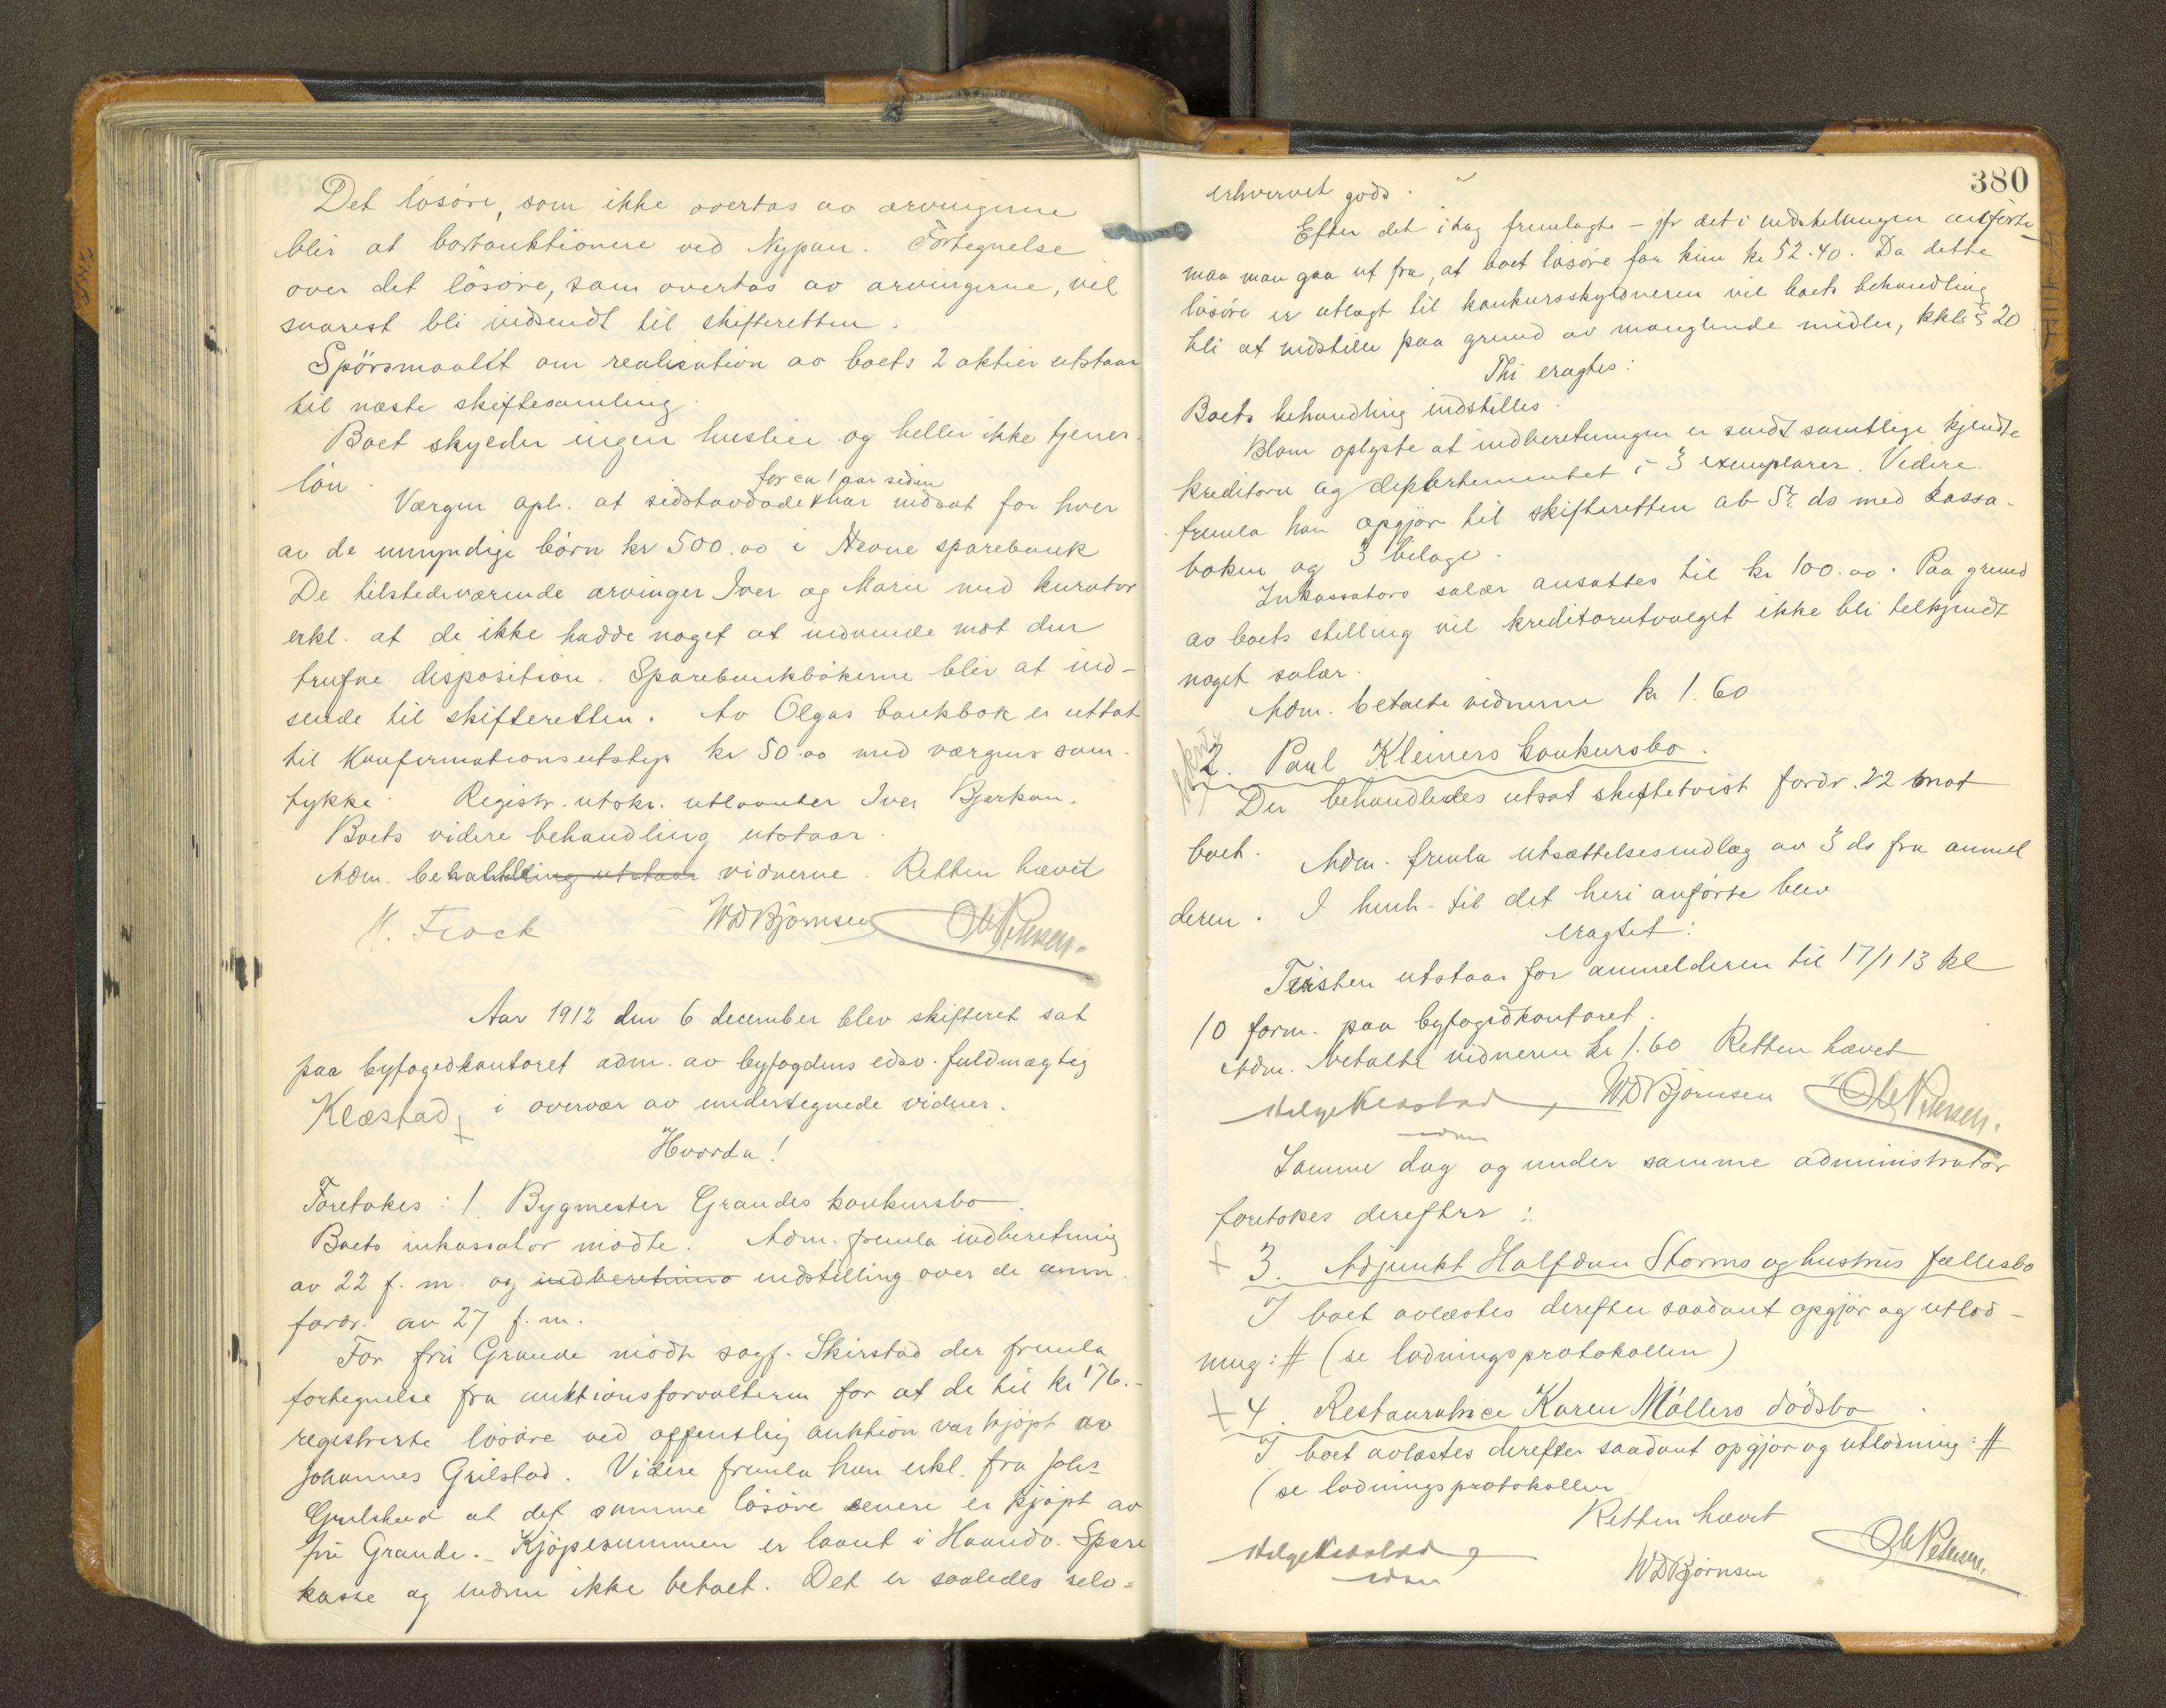 Det løsøre, som ikke overtas av arvingerne
blir at bortauktionere ved Nypan. Fortegnelse
over det løsøre, som overtas av arvingerne, vil
snarest bli indsendt til skifteretten.
Spørsmaalet om realisation av boets 2 aktier utstaar
til næste skiftesamling.
Boet skylder ingen husleie og heller ikke tjener-
løn.
for ca 1 aar siden
Værgen opl. at sidstavdøde har indsat for hver
av de umyndige børn kr 500.00 i Hevne sparebank
De tilstedeværende arvinger Iver og Marie med kurator
erkl. at de ikke hadde noget at indvende mot den
trufne disposition. Sparebankbøkerne blir at ind-
sende til skifteretten. Av Olgas bankbok er uttat
til konfirmationsutstyr kr 50.00 med værgens sam-
tykke. Registr. utskr. utlaantes Iver Bjerkan.
Boets videre behandling utstaar.
Adm. behandling utstaar vidnerne. Retten hævet
H. Frock WD Bjørnsen Ole Petersen.
Aar 1912 den 6 december blev skifteret sat
paa byfogedkontoret adm. av byfogdens edsv. fuldmægtig
Klæstad, i overvær av undertegnede vidner.
Hvorda!
Foretokes: 1. Bygmester Grandes konkursbo.
Boets inkassator mødte. Adm. fremla indberetning
av 22 f. m. og indberetning indstilling over de anm.
fordr. av 27 f. m.
For fru Grande mødte sagf. Skirstad der fremla
fortegnelse fra auktionsforvalteren for at de til kr 176.-
registrerte løsøre ved offentlig auktion var kjøpt av
Johannes Grilstad. Videre fremla han erkl. fra Johs
Grilstad at det samme løsøre senere er kjøpt av
fru Grande. Kjøpesummen er laant i Haandv. Spare
kasse og endnu ikke betalt. Det er saaledes selv-
380
erhvervet gods.
Efter det idag fremlagte - jfr det i indstillingen anførte -
maa man gaa ut fra, at boet løsøre for kun kr 52.40. Da dette
løsøre er utlagt til konkursskyldneren vil boets behandling
bli at indstille paa grund av manglende midler, kkl § 20
Thi eragtes:
Boets behandling indstilles.
Blom oplyste at indberetningen er sendt samtlige kjendte
kreditorer og departementet i 3 exemplarer. Videre
fremla han opgjør til skifteretten av 5te ds med kassa-
boken og 3 bilage.
Inkassators salær ansattes til kr 100.00. Paa grund
av boets stilling vil kreditorutvalget ikke bli tilkjendt
noget salær.
Adm. betalte vidnerne kr 1.60
2. Paul Kleiners konkursbo.
Der behandledes utsat skiftetvist fordr. 22 mot
boet.
Adm. fremla utsættelsesindlæg av 3 ds fra anmel
deren. I henh. til det heri anførte blev
eragtet:
Tvisten utstaar for anmelderen til 17/1 13 kl
10 form. paa byfogedkontoret.
Adm. betalte vidnerne kr 1.60 Retten hævet
Helge Klæstad, WD Bjørnsen Ole Petersen.
edsv
Samme dag og under samme administrator
foretokes derefter:
3. Adjunkt Halfdan Storms og hustrus fællesbo
I boet avlæstes derefter saadant opgjør og utlod-
ning: # (se lodningsprotokollen)
4. Restauratrice Karen Møllers dødsbo.
I boet avlæstes derefter saadant opgjør og utlodning: #
(se lodningsprotokollen
Retten hævet
Helge Klæstad, WD Bjørnsen Ole Petersen.
edsv